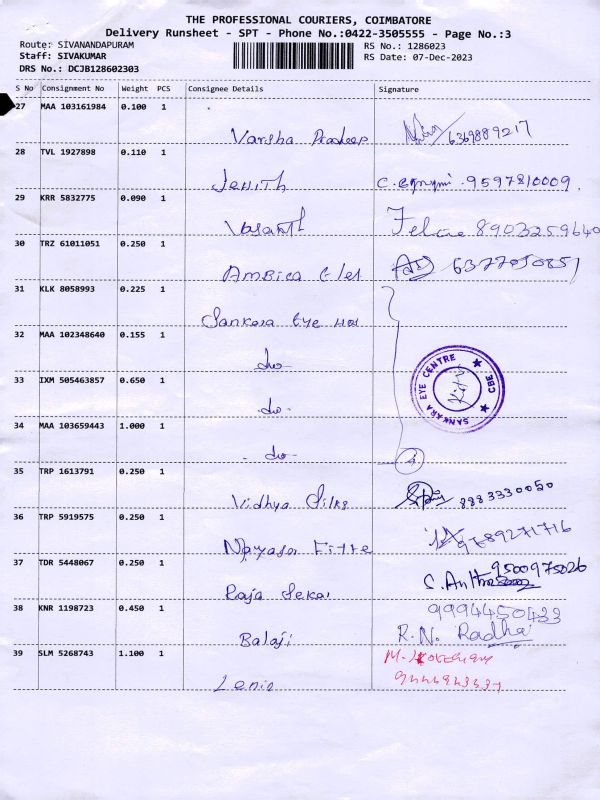 THE PROFESSIONAL COURIERS, COIMBATORE
Delivery Runsheet - SPT - Phone No.:0422-3505555 - Page No.:3
Route: SIVANANDAPURAM RS No.: 1286023
Staff: SIVAKUMAR RS Date: 07-Dec-2023
DRS No.: DCJB128602303
S No Consignment No Weight PCS Consignee Details Signature
27 MAA 103161984 0.100 1
Varsha Pradeep 6369889217
28 TVL 1927898 0.110 1
Jenith 9597810009
29 KRR 5832775 0.090 1
Vasanth 8903259640
30 TRZ 61011051 0.250 1
Ambica 6377050851
31 KLK 8058993 0.225 1
Sankara Eye Hos
32 MAA 102348640 0.155 1
-do-
33 IXM 505463857 0.650 1
-do-
SANKARA EYE CENTRE ★ CBE ★
34 MAA 103659443 1.000 1
-do- 4
35 TRP 1613791 0.250 1
Vidhya Silks 8883330050
36 TRP 5919575 0.250 1
9789271716
37 TDR 5448067 0.250 1
9500975026
Raja Sekar
38 KNR 1198723 0.450 1
9994450433
Balaji R.N. Radha
39 SLM 5268743 1.100 1
Lenin